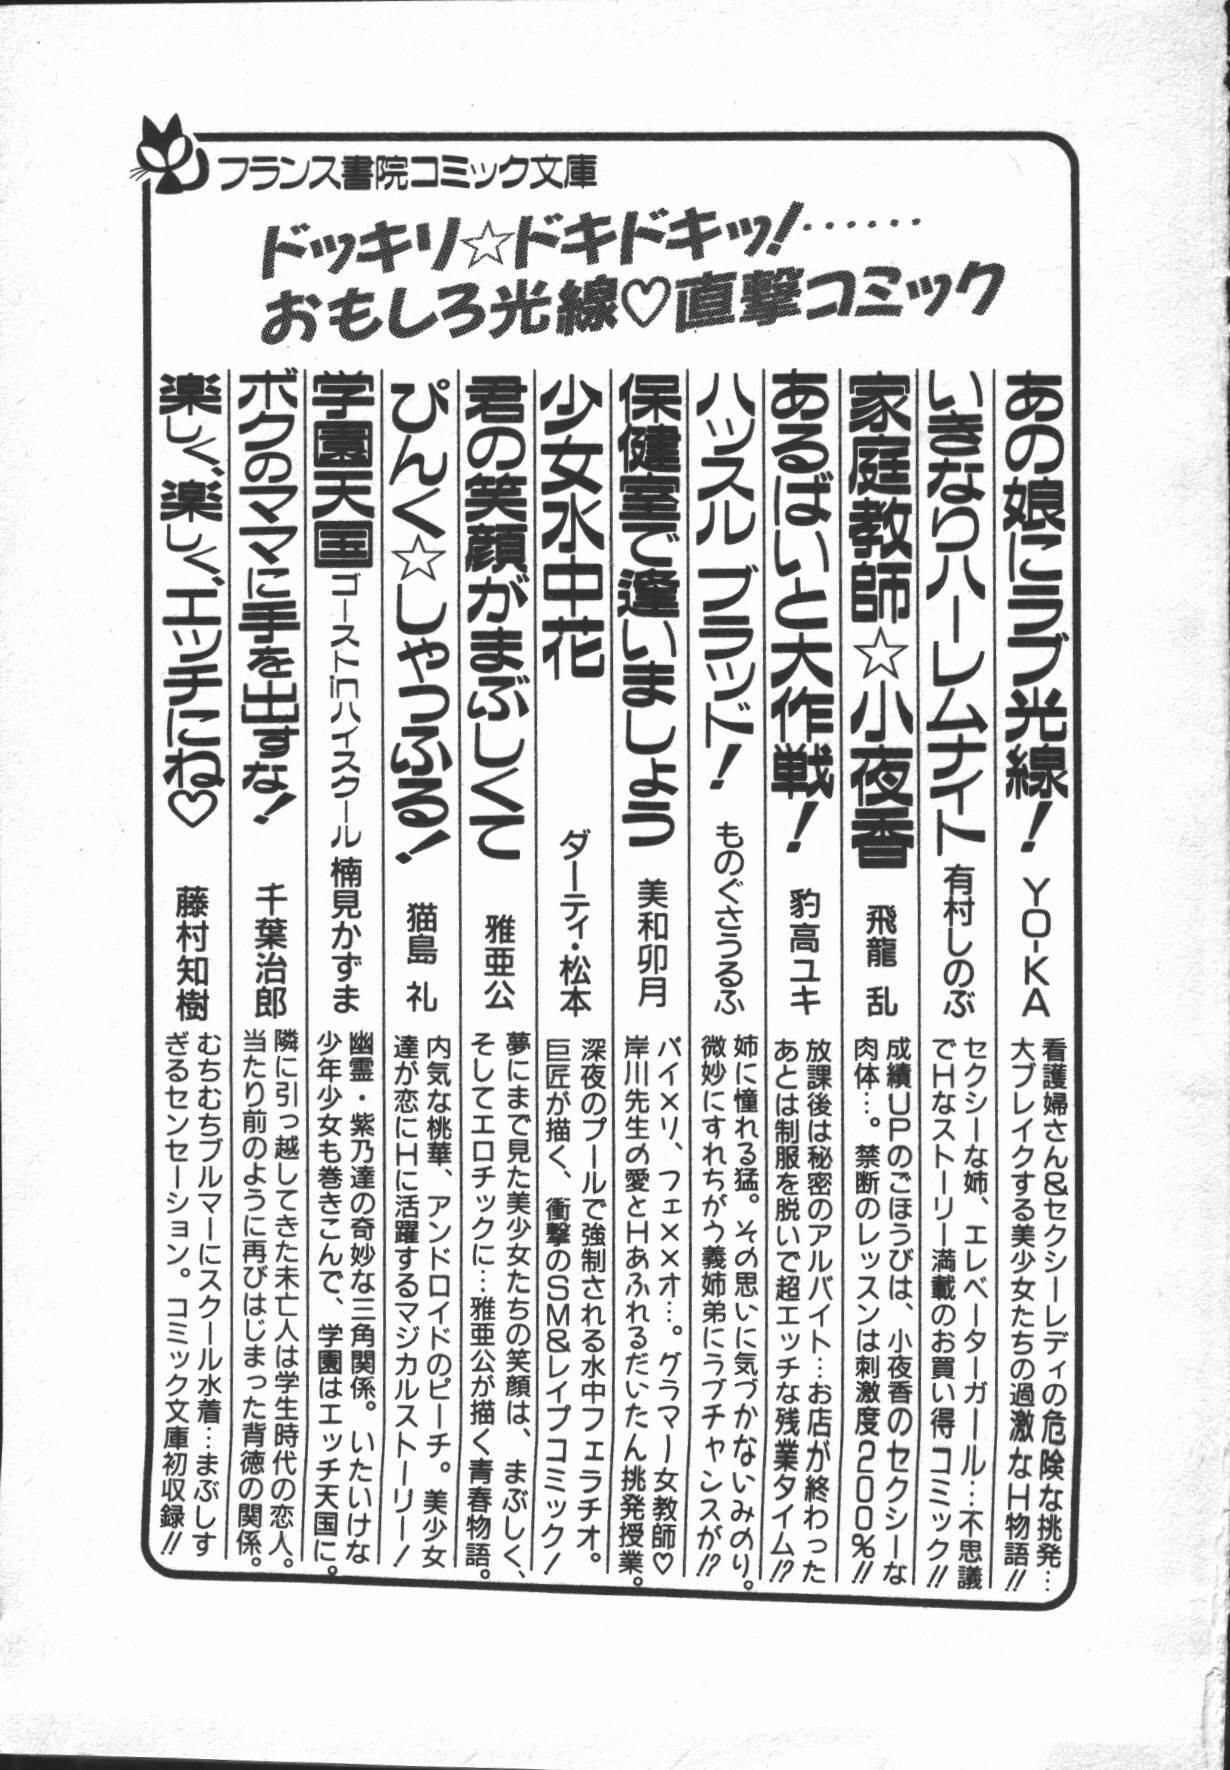 フランス書院コミック文庫
ドッキリ☆ドキドキッ!……
おもしろ光線♡直撃コミック
あの娘にラブ光線! YO-KA
看護婦さん&セクシーレディの危険な挑発…
大ブレイクする美少女たちの過激なH物語!!
いきなりハーレムナイト 有村しのぶ
セクシーな姉、エレベーターガール…不思議
でHなストーリー満載のお買い得コミック!!
家庭教師☆小夜香 飛龍 乱
成績UPのごほうびは、小夜香のセクシーな
肉体…。禁断のレッスンは刺激度200%!!
あるばいと大作戦! 豹高ユキ
放課後は秘密のアルバイト…お店が終わった
あとは制服を脱いで超エッチな残業タイム!?
ハッスルブラッド! ものぐさうるふ
姉に憧れる猛。その思いに気づかないみのり。
微妙にすれちがう義姉弟にラブチャンスが!?
保健室で逢いましょう 美和卯月
パイ×リ、フェ××オ…。グラマー女教師♡
岸川先生の愛とHあふれるだいたん挑発授業。
少女水中花 ダーティ・松本
深夜のプールで強制される水中フェラチオ。
巨匠が描く、衝撃のSM&レイプコミック!
君の笑顔がまぶしくて 雅亜公
夢にまで見た美少女たちの笑顔は、まぶしく、
そしてエロチックに…雅亜公が描く青春物語。
ぴんく☆しゃっふる! 猫島 礼
内気な桃華、アンドロイドのピーチ。美少女
達が恋にHに活躍するマジカルストーリー!
学園天国 ゴーストinハイスクール 楠見かずま
幽霊・紫乃達の奇妙な三角関係。いたいけな
少年少女も巻きこんで、学園はエッチ天国に。
ボクのママに手を出すな! 千葉治郎
隣に引っ越してきた未亡人は学生時代の恋人。
当たり前のように再びはじまった背徳の関係。
楽しく、楽しく、エッチにね♡ 藤村知樹
むちむちブルマーにスクール水着…まぶしす
ぎるセンセーション。コミック文庫初収録!!